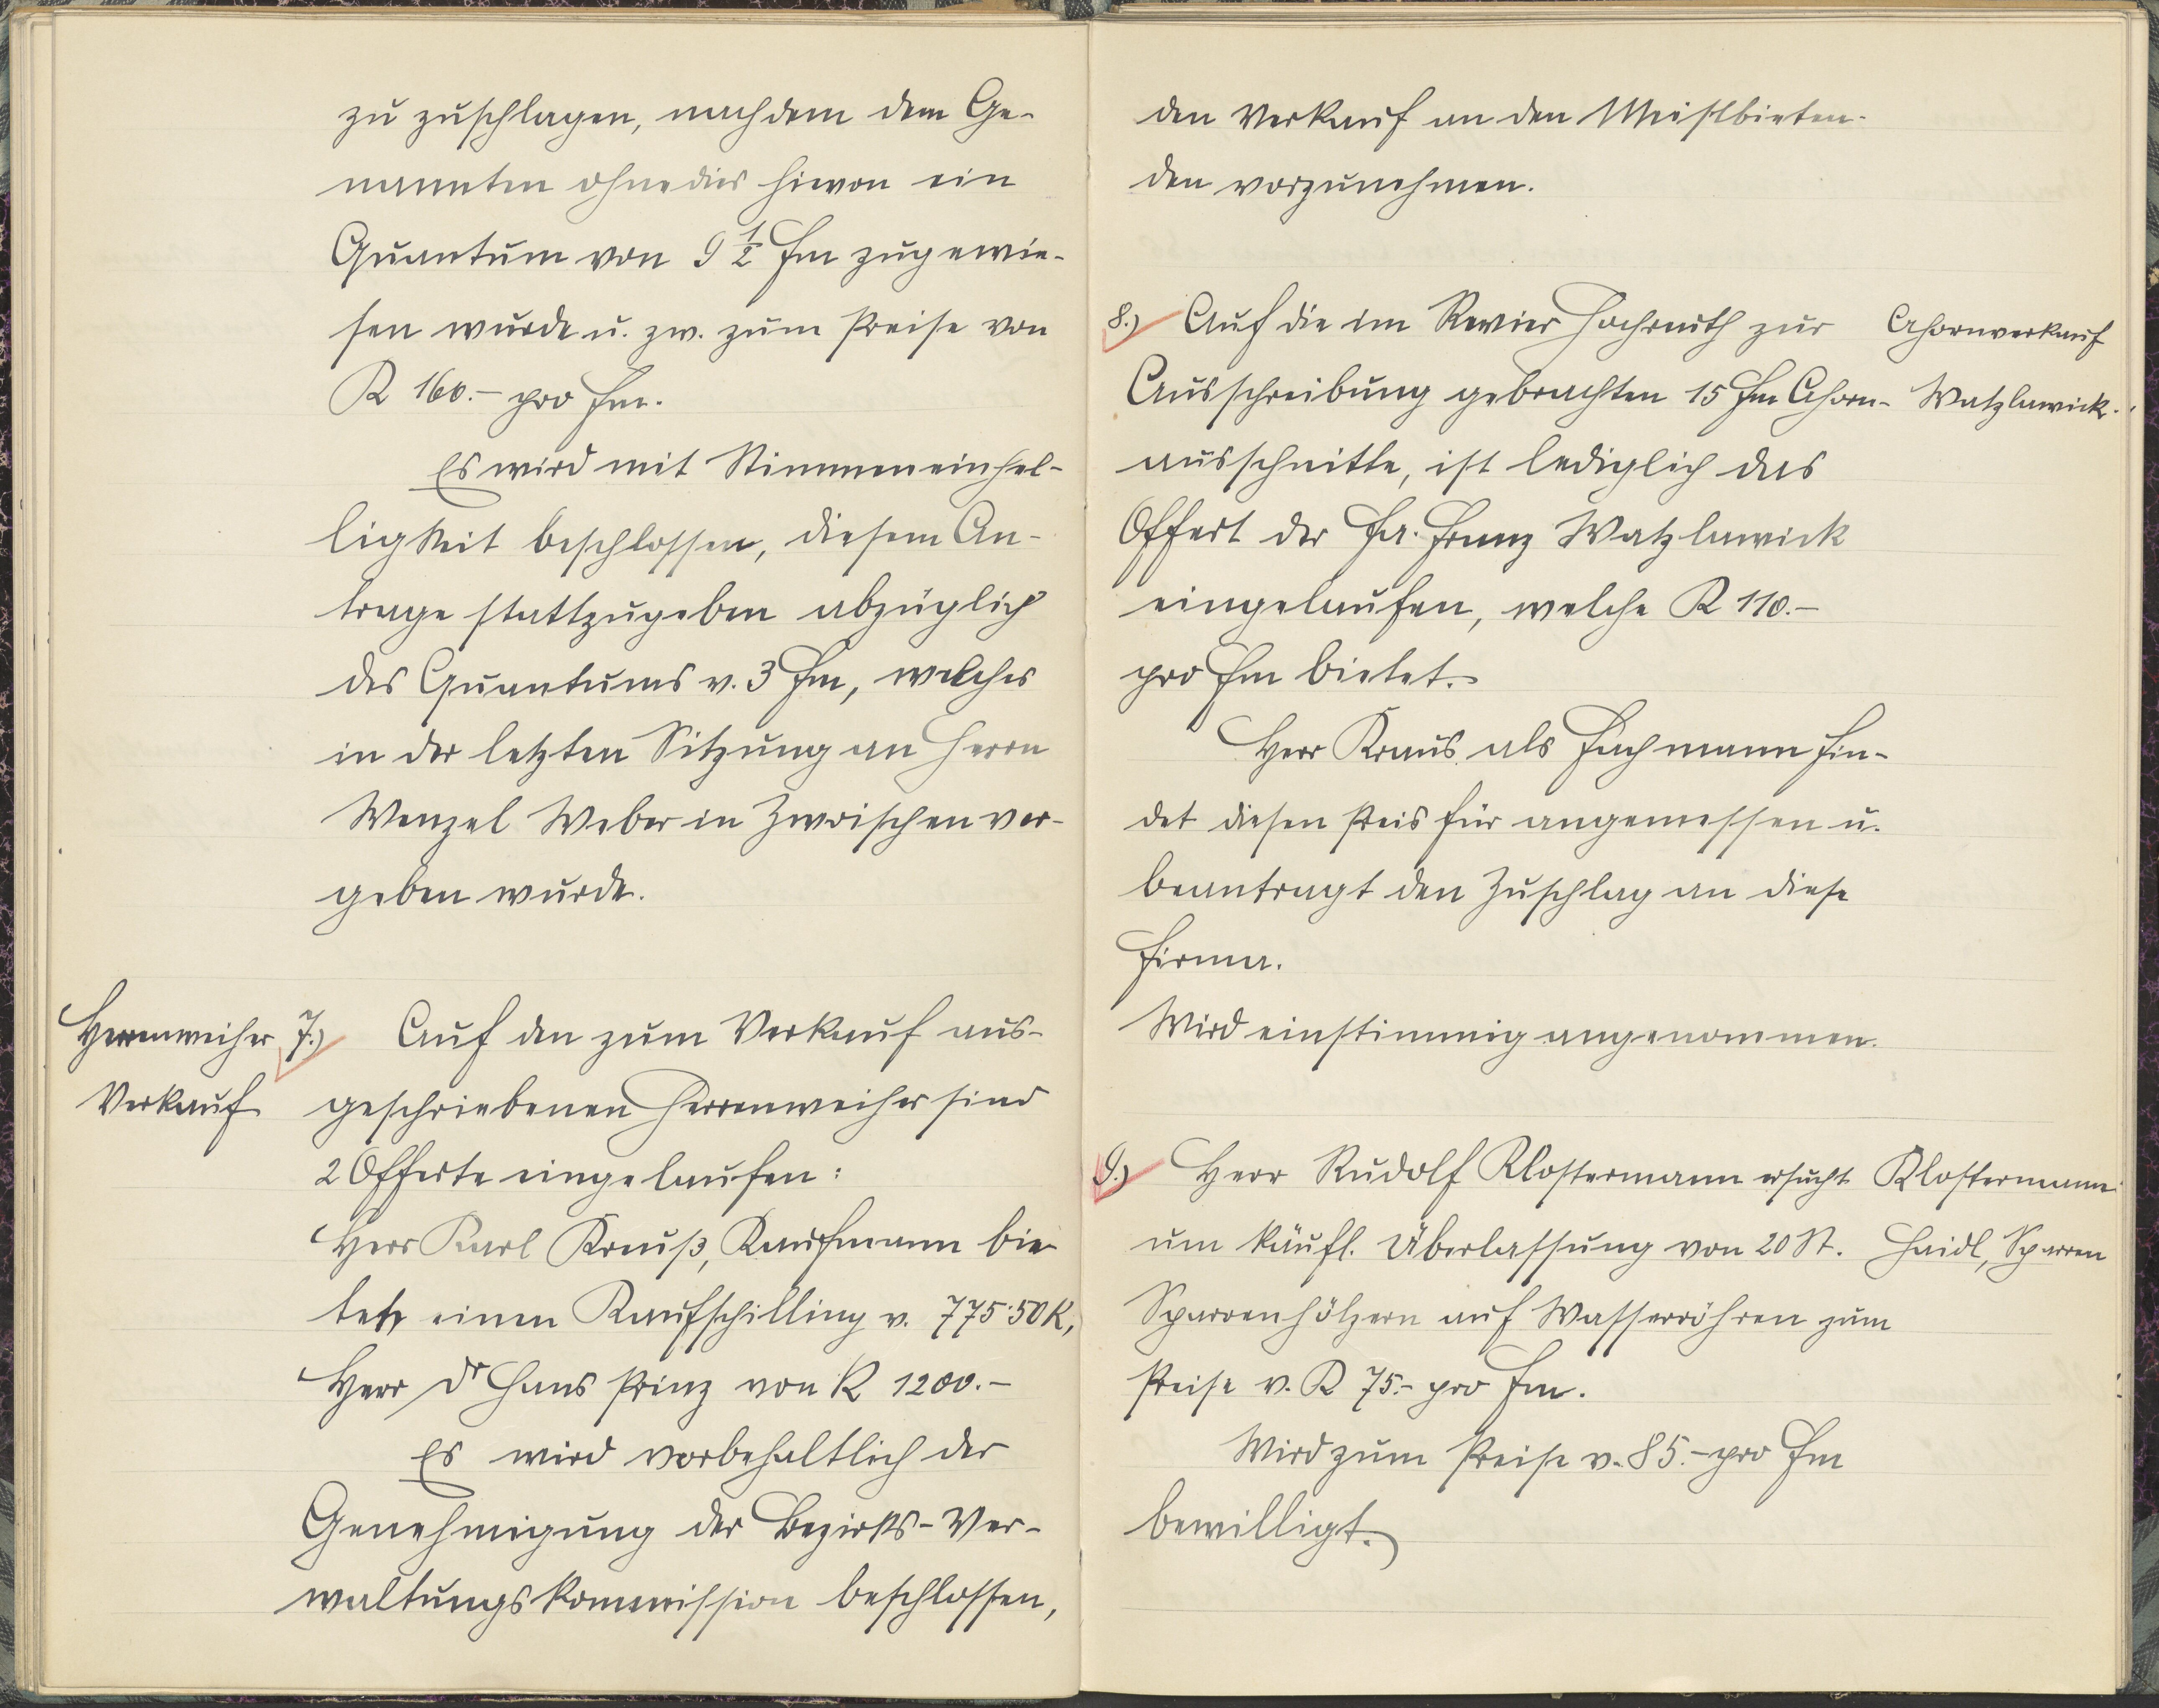 zu zuschlagen, nachdem dem Ge-
nannten ohnedies hievon ein
Quantum von 9 1/2 fm zugewie-
sen wurde u. zw. zum Preise von
K 160.- pro fm.
Es wird mit Stimmeneinhel-
ligkeit beschlossen, diesem An-
trage stattzugeben abzüglich
des Quantums v. 3 fm, welches
in der letzten Sitzung an Herrn
Wenzel Weber in Zwoischen ver-
geben wurde.
Herrenweiher
Verkauf
7.) Auf den zum Verkauf aus-
geschriebenen Herrenweiher sind
2 Offerte eingelaufen:
Herr Karl Krauß, Kaufmann bie-
tet einen Kaufschilling v. 775·50 K,
Herr Dr Hans Prinz von K 1200.-
Es wird vorbehaltlich der
Genehmigung der Bezirks-Ver-
waltungskommission beschlossen,
den Verkauf an den Meistbieten-
den vorzunehmen.
8.) Auf die im Revier Hochreuth zur
Ausschreibung gebrachten 15 fm Ahorn-
ausschnitte, ist lediglich das
Offert der Fa. Franz Watzlawick
eingelaufen, welche K 110.-
pro fm bietet.
Ahornverkauf
Watzlawick.
Herr Kraus als Fachmann fin-
det diesen Preis für angemessen u.
beantragt den Zuschlag an diese
Firma.
Wird einstimmig angenommen.
9.) Herr Rudolf Klostermann ersucht
um käufl. Überlassung von 20 St.
Sparrenhölzern auf Wasserröhren zum
Preise v. K 75.- pro fm.
Klostermann
Haidl, Sparren
Wird zum Preise v. 85.- pro fm
bewilligt.